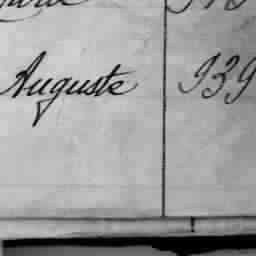 Auguste 939